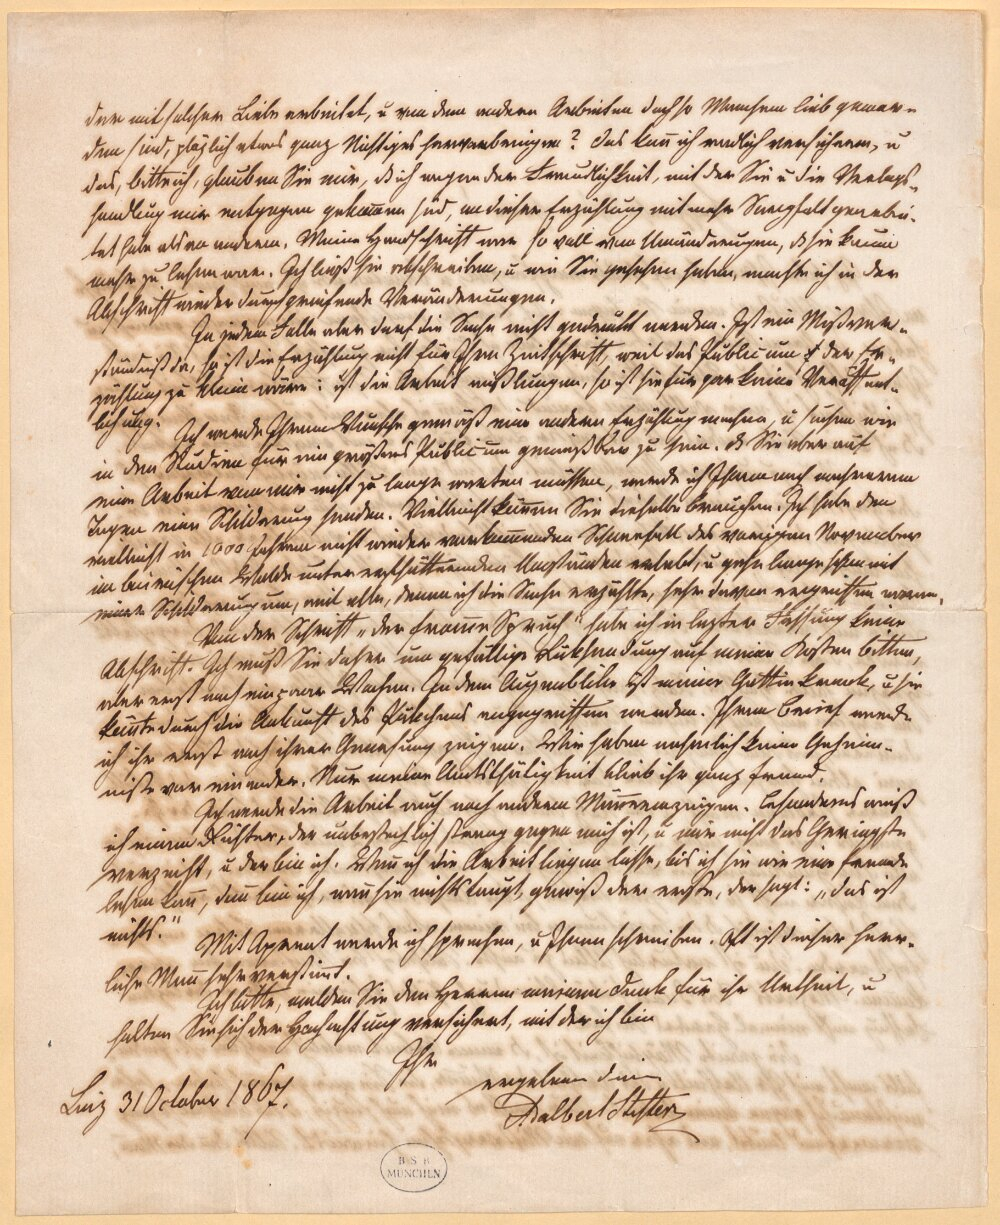 der mit solcher Liebe arbeitet, u von dem andere Arbeiten doch so Manchem lieb gewor-
den sind, plözlich etwas ganz Nichtiges hervorbringen? Das kan ich redlich versichern, u
das, bitte ich, glauben Sie mir, dß ich wegen der Freundlichkeit, mit der Sie u die Verlags-
handlug mir entgegen gekomen sind, an dieser Erzählung mit mehr Sorgfalt gearbei-
tet habe als an anderen. Meine Handschrift war so voll von Umänderugen, dß sie kaum
mehr zu lesen war. Ich ließ sie abschreiben, u wie Sie gesehen haben, machte ich in der
Abschrift wieder durchgreifende Veränderungen.
In jedem Falle aber darf die Sache nicht gedrukt werden. Ist ein Mißver-
ständniß da, so ist die Erzählung nicht für Ihre Zeitschrift, weil das Publicum der Er-
zählung zu klein wäre; ist die Arbeit mißlungen, so ist sie für gar keine Veröffent-
lichug.
Ich werde Ihrem Wunsche gemäß eine andere Erzählung machen, u suchen wie
in den Studien für ein größeres Publicum genießbar zu sein. Dß Sie aber auf
eine Arbeit von mir nicht zu lange warten müssen, werde ich Ihnen nach mehreren
Tagen eine Schilderung senden. Vielleicht könen Sie dieselbe brauchen. Ich habe den
vielleicht in 1000 Jahren nicht wieder vorkomenden Schneefall des vorigen November
im bairischen Walde unter erschütternden Umständen erlebt, u gehe lange schon mit
einer Schilderung um, weil alle, denen ich die Sache erzählte, sehr davon ergriffen waren.
Von der Schrift „der fromme Spruch" habe ich in lezter Fassung keine
Abschrift. Ich muß Sie daher um gefällige Rüksendung auf meine Kosten bitten,
aber erst nach ein paar Wochen. In dem Augenblike ist meine Gattin krank, u sie
könte durch die Ankunft des Päkchens angegriffen werden. Ihren Brief werde
ich ihr erst nach ihrer Genesung zeigen. Wir haben nehmlich keine Geheim-
niße vor einander. Nur meine Amtsthätigkeit blieb ihr ganz fremd.
Ich werde die Arbeit auch noch anderen Mänern zeigen. Besonders weiß
ich einen Richter, der unbestechlich streng gegen mich ist, u mir nicht das Geringste
verzeiht, u der bin ich. Wen ich die Arbeit liegen lasse, bis ich sie wie eine fremde
lesen kan, dan bin ich, wen sie nichts taugt, gewiß der erste, der sagt: „das ist
nichts."
Mit Aprent werde ich sprechen, u Ihnen schreiben. Oft ist dieser herr-
liche Man sehr verstimt.
Ich bitte, melden Sie den Herren meinen Dank für ihr Urtheil, u
halten Sie sich der Hochachtung versichert, mit der ich bin
Ihr
ergebenster
Linz 31 October 1867.
Adalbert Stifter
B S B
MÜNCHEN